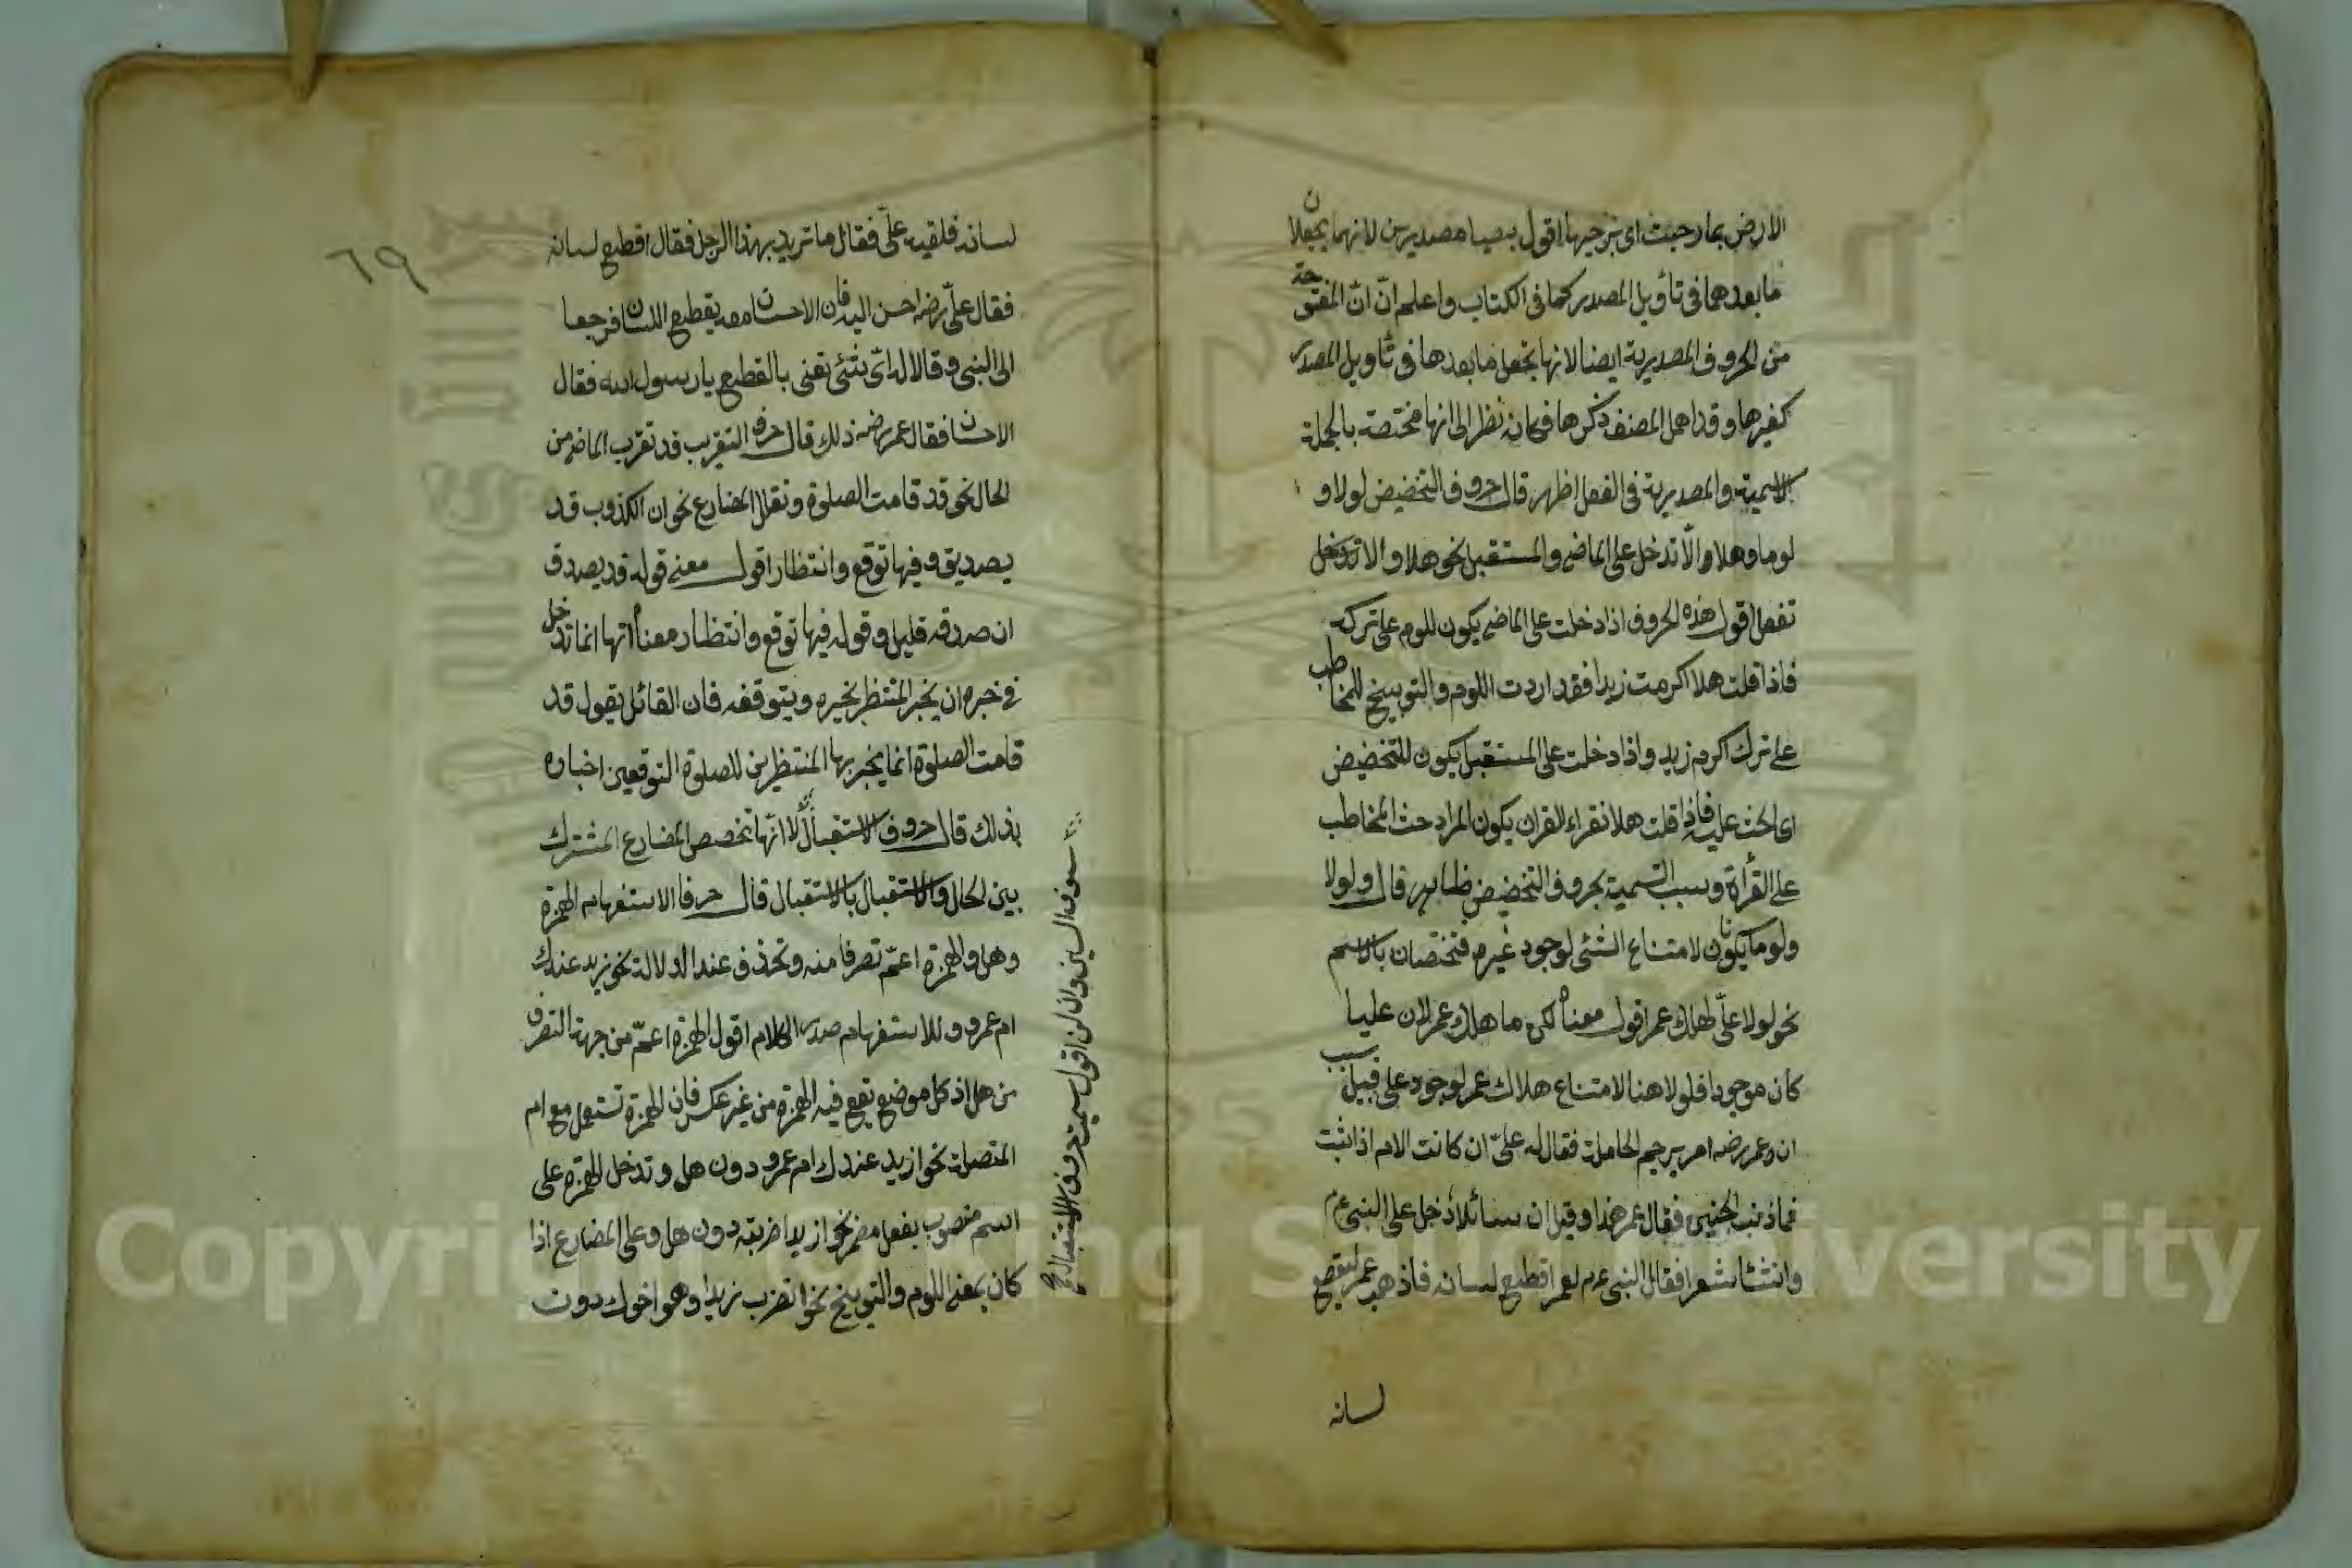 الارض بما رحبت اى برحبها اقول سميا مصدريين لانهما يجعلان
ما بعدهما فى تأويل المصدر كما فى الكتاب واعلم انّ انّ المفتوحة
من الحروف المصدرية ايضا لانها تجعل ما بعدها فى تأويل المصدر
كغيرها وقد اهمل المصنف ذكرها فكانه نظر الى انها مختصة بالجملة
الاسمية والمصدرية فى الفعل اظهر قال حروف التحضيض لولا و
لوما وهلا والّا تدخل على الماضى والمستقبل نحو هلا والا
تفعل اقول هذه الحروف اذا دخلت على الماضى يكون للوم على تركه
فاذا قلت هلا اكرمت زيدا فقد اردت اللوم والتوبيخ للمخاطب
على ترك اكرم زيد واذا دخلت على المستقبل يكون للتحضيض
اى الحث عليه فاذا قلت هلا تقراء القران يكون المراد حث المخاطب
على القرأة وسبب التسمية بحروف التحضيض ظاهر قال ولولا
ولوما يكونان لامتناع الشئ لوجود غيره فتختصان بالاسم
نحو لولا علىّ لهلك عمر اقول معناه لكن ما هلك عمر لان عليا
كان موجودا فلولا هنا لامتناع هلاك عمر لوجود على قيل سبب
ان عمر رضه امر برجم الحاملة فقال له علىّ ان كانت الام اذا نبت
فما ذنب الجنين فقال عمر هذا وقيل ان سائلا دخل على النبى عم
وانشئا شعرا فقال النبى عم لعمر اقطع لسانه فاذهب عمر ليقطع
لسانه
٦٩
لسانه فلقيه علىّ فقال ما تريد بهذا الرجل فقال اقطع لسانه
فقال علىّ رضه احسن اليه فان الاحسان معه يقطع اللسان فرجعا
الى النبى وقالا له اىّ شئ تعنى بالقطع يا رسول الله فقال
الاحسان فقال عمر رضه ذلك قال حرف التقريب قد تقرب الماضى من
الحال نحو قد قامت الصلوة وتقلل المضارع نحو ان الكذوب قد
يصدق وفيها توقع وانتظار اقول معنى قوله قد يصدق
ان صدقه قليل وقوله فيها توقع وانتظار معناه انها انما تدخل
فى خبره ان يخبر المنتظر بخبره ويتوقفه فان القائل يقول قد
قامت الصلوة انما يخبر بها المنتظرين للصلوة المتوقعين اخباره
بذلك قال حروف الاستقبال لانها تخصص المضارع المشترك
بين الحال والاستقبال بالاستقبال قال حرفا الاستفهام الهمزة
وهل والهمزة اعمّ تصرفا منه وتحذف عند الدلالة نحو زيد عندك
ام عمرو وللاستفهام صدر الكلام اقول الهمزة اعمّ من جهة التصرف
من هل اذ كل موضع يقع فيه الهمزة من غير عكس فان الهمزة تستعمل مع ام
المتصلة نحو ازيد عندك ام عمرو دون هل وتدخل الهمزة على
اسم منصوب بفعل مضمر نحو ازيدا ضربته دون هل وعلى المضارع اذا
كان بمعنى اللوم والتوبيخ نحو اتضرب زيدا وهو اخوك دون
سوف السين وان لن اقول سميت حروف الاستقبال صح